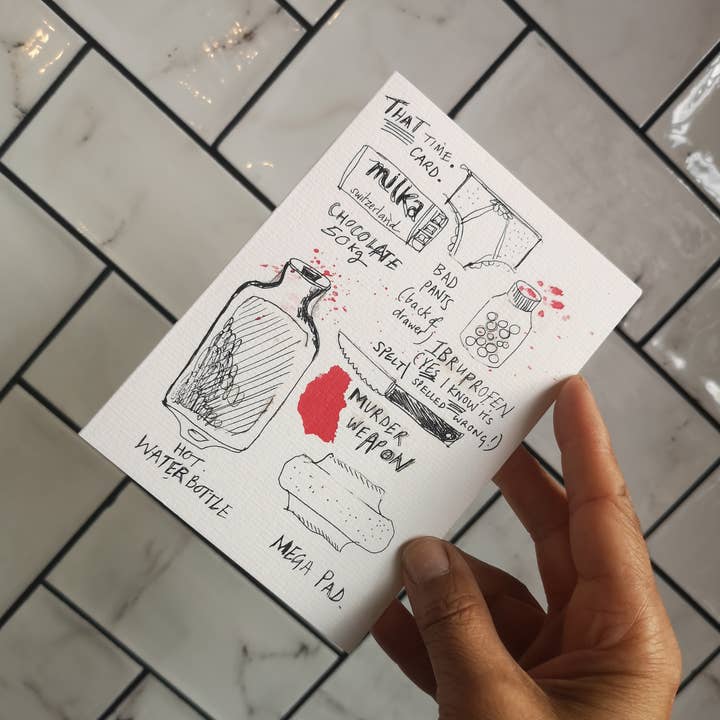 THAT TIME.
CARD.
milka
switzerland
CHOCOLATE
50kg
BAD
PANTS
(back of
drawer)
IBRUPROFEN
(YES I KNOW ITS
SPELT SPELLED WRONG!)
MURDER
WEAPON
HOT
WATER BOTTLE
MEGA PAD.